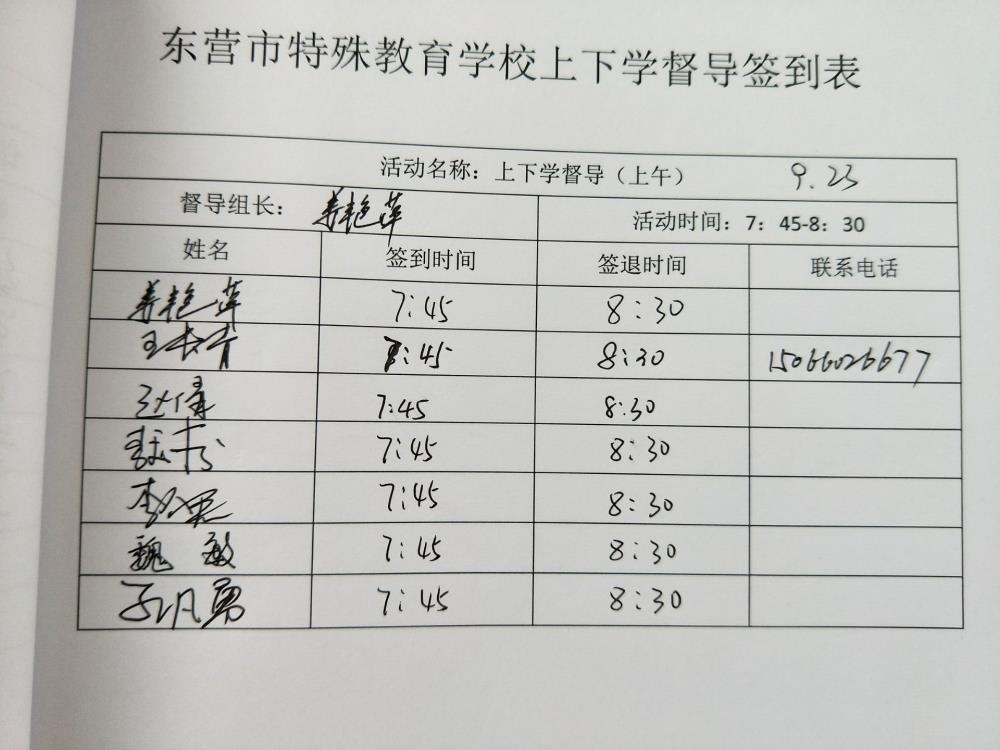 东营市特殊教育学校上下学督导签到表
活动名称：上下学督导（上午） 9.23
督导组长：姜艳萍 活动时间：7：45-8：30
姓名 签到时间 签退时间 联系电话
姜艳萍 7:45 8:30
王长青 7:45 8:30 15066026677
7:45 8:30
7:45 8:30
7:45 8:30
魏敏 7:45 8:30
孙凡勇 7:45 8:30